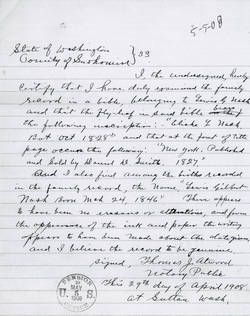 5-5-08
State of Washington
County of Snohomish } SS.
I the undersigned, hereby
certify that I have duly examined the family
record in a bible, belonging to Lewis G Nash
and that the fly leaf in said bible
the following inscription: "
Oct 1828" and that at the foot of title
page occurs the following: "New York. Published
and Sold by Daniel D. Smith. 1827"
And I also find among the births recorded
in the family record, the Name, "Lewis Gilbert
Nash Born Mch 24, 1846" There appears
to have been no erasures or alterations, and from
the appearance of the ink and paper the writing
appears to have been made about the date given
and I believe the record to be genuine.
Signed, Thomas J. Atwood
Notary Public
This 29th day of April 1908
at Sultan Wash.
PENSION
U. S.
MAY
5
1908
OFFICE